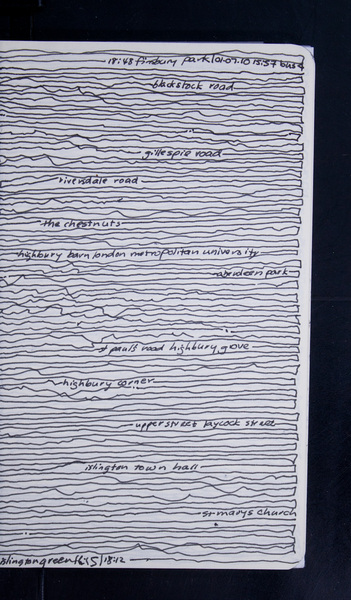 18:48 finsbury park | 01.07.10 15:57 bus 4
blackstock road
gillespie road
riversdale road
the chestnuts
highbury barn london metropolitan university
aberdeen park
st pauls road highbury grove
highbury corner
upper street laycock street
islington town hall
st marys church
islington green 18:12